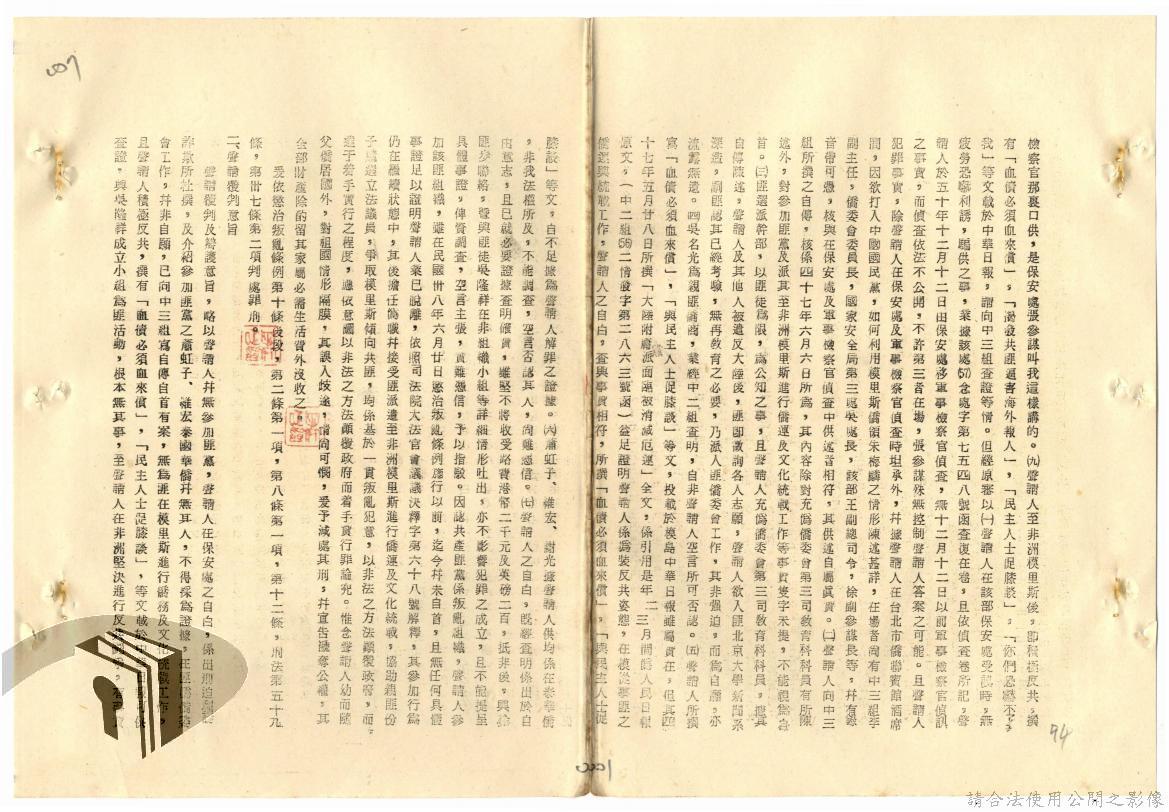 檢察官那裏口供，是保安處張參謀叫我這樣講的。㈨聲請人至非洲模里斯後，即積極反共，撰
有「血債必須血來償」，「高發共匪迫害海外報人」，「民主人士促膝談」，「你們恐嚇不了
我」等文載於中華日報，請向中三組查證等情。但經原審以㈠聲請人在該部保安處受訊時，無
疲勞恐嚇利誘，騙供之事，業據該處(57)念處字第七五四八號函查復在卷，且依偵查卷所記，聲
請人於五十年十二月十二日由保安處移軍事檢察官偵查，無十二月十二日以前軍事檢察官偵訊
之事實，而偵查依法不公開，不許第三者在場，張參謀殊無控制聲請人答案之可能。且聲請人
犯罪事實，除聲請人在保安處及軍事檢察官偵查時坦承外，幷據聲請人在台北市僑聯賓館酒席
間，因欲打入中國國民黨，如何利用模里斯僑領朱梅麟之情形陳述甚詳，在場者尚有中三組李
副主任，僑委會委員長，國家安全局第三處吳處長，該部王副總司令，徐副參謀長等，幷有錄
音帶可憑，核與在保安處及軍事檢察官偵查中供述者相符，其供述自屬眞實。㈡聲請人向中三
組所撰之自傳，核係四十七年六月六日所爲，其內容除對充僞僑委會第三司教育科科員有所陳
述外，對參加匪黨及派其至非洲模里斯進行僑運及文化統戰工作等事實隻字未提，不能視爲自
首。㈢匪選派幹部，以匪徒爲限，爲公知之事，且聲請人充僞僑委會第三司教育科科員，據其
自傳陳述，聲請人及其他人被遣反大陸後，匪卽徵詢各人志願，聲請人欲入匪北京大學新聞系
深造，嗣匪認其已經考驗，無再教育之必要，乃派人匪僑委會工作，其非強迫，而爲自願，亦
流露無遺。㈣吳名光爲親匪僑商，業經中二組查明，自非聲請人空言所可否認。㈤聲請人所撰
寫「血債必須血來償」，「與民主人士促膝談」等文，投載於模島中華日報雖屬實在，但其四
十七年五月廿八日所撰「大陸附屬派面臨被消滅厄運」全文，係引用是年二三月間僞人民日報
原文，（中二組(56)二情發字第二八六三號函）益足證明聲請人係僞裝反共姿態，在模從事匪之
僑運與統戰工作，聲請人之自白，查與事實相符，所撰「血債必須血來償」，「與民主人士促
膝談」等文，自不足據爲聲請人解罪之證據。㈥蕭虹子、雍宏、謝光據聲請人供均係在泰華僑
，非我法權所及，不能調查，空言否認其人，尚難憑信。㈦聲請人之自白，既經查明係出於自
由意志，且已就必要證據查明確實，雖堅不將收受路費港幣二千元及英磅二百，抵非後，與
匪步聯絡，暨與匪徒吳隆祥在非組織小組等詳細情形吐出，亦不影響犯罪之成立，且不能提呈
具體事證，俾資調查，空言主張，實難憑信，予以指駁。因認共產匪黨係叛亂組織，聲請人參
加該匪組織，雖在民國卅八年六月廿日懲治叛亂條例應行以前，迄今幷未自首，且無任何具體
事證足以證明聲請人業已脫離，依照司法院大法官會議議決釋字第六十八號解釋，其參加行爲
仍在繼續狀態中，其後擔任僞職幷接受匪派遣至非洲模里斯進行僑運及文化統戰，協助親匪份
子競選立法議員，爭取模里斯傾向共匪，均係基於一貫叛亂犯意，以非法之方法顚覆政府，而
達于着手實行之程度，應依意圖以非法之方法顚覆政府而着手實行罪論究。惟念聲請人幼而隨
父僑居國外，對祖國情形隔膜，其誤入歧途，情尚可憫，爰予減處其刑，幷宣告褫奪公權，其
全部財產除酌留其家屬必需生活費外沒收之。
爰依懲治叛亂條例第十條後段，第二條第一項，第八條第一項，第十二條，刑法第五十九
條，第卅七條第二項判處罪刑。
二、聲請覆判意旨
聲請人聲請覆判及辯護意旨，略以聲請人幷無參加匪黨，聲請人在保安處之自白，係出刑迫
詐欺所杜撰，及介紹參加匪黨之蕭虹子、雍宏泰國華僑幷無其人，不得採爲證據，在匪僑委
會工作，幷非自願，已向中三組寫自傳自首有案，無爲匪在模里斯進行僑務及文化統戰工作，
且聲請人積極反共，撰有「血債必須血來償」，「民主人士促膝談」，等文載於中
查證，與吳隆祥成立小組爲匪活動，根本無其事，至聲請人在非洲堅決進行反共
94
請合法使用公開之影像